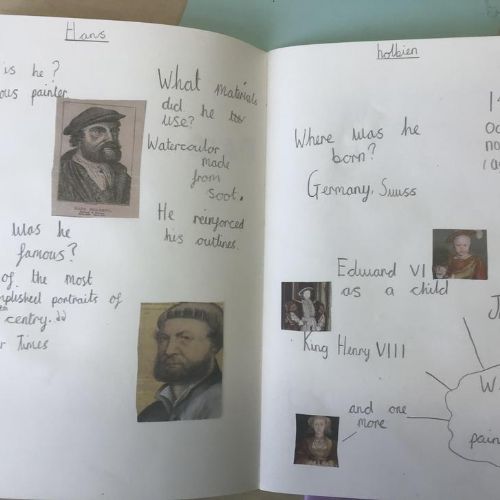 Hans
is he?
ous painter
What materials
did he
use?
Watercoulor
made
from
Soot.
He reinforced
his outlines.
was he
famous?
of the most
mplished portraits of
centry.
Times
holbien
Where was he
born?
Germany, Suuss
Edward VI
as a child
King Henry VIII
and one
more
W
pain